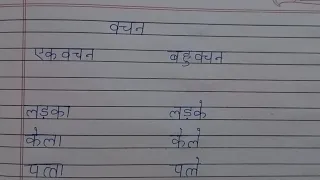 वचन
एकवचन बहुवचन
लड़का लड़के
केला केले
पत्ता पत्ते